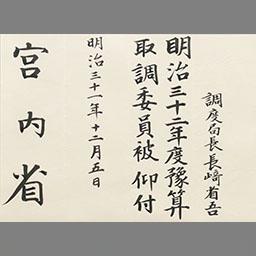 調度局長長崎省吾
明治三十二年度豫算
取調委員被仰付
明治三十一年十二月五日
宮内省